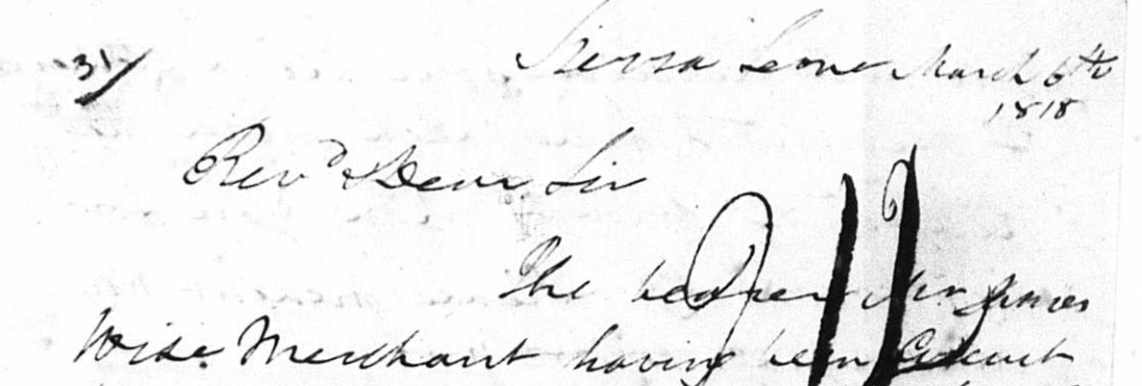 31/
Sierra Leone March 6th
1818
Revd Dear Sir
The bearer Mr James
Wise Merchant having been Circuit